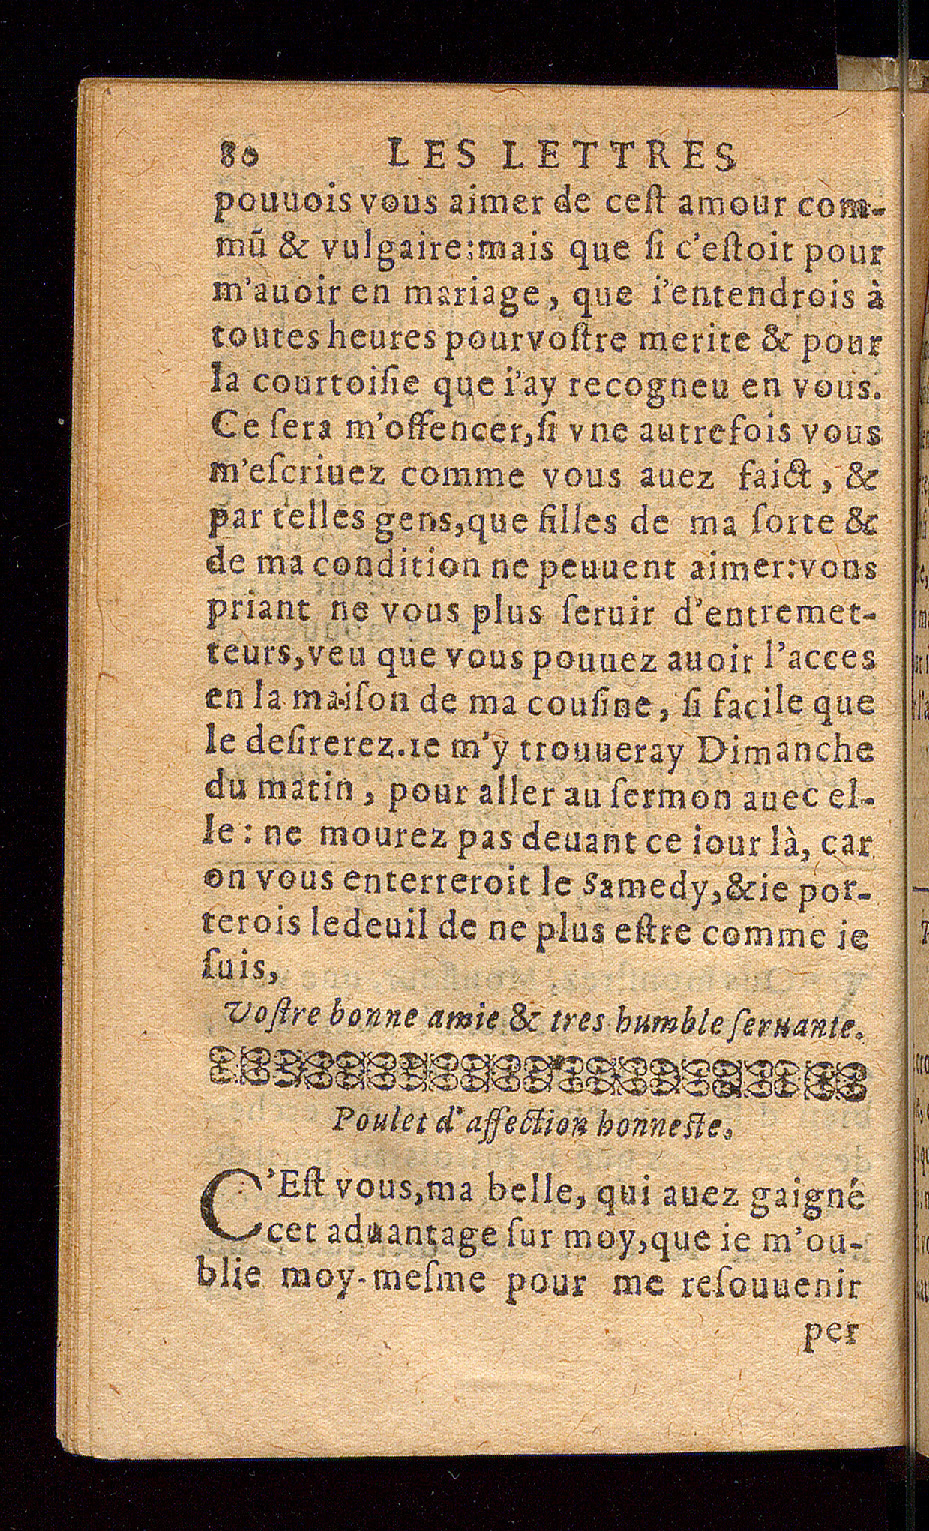 80 LES LETTRES
pouuois vous aimer de ceſt amour com-
mū & vulgaire:mais que ſi c'eſtoit pour
m'auoir en mariage, que i'entendrois à
toutes heures pour voſtre merite & pour
la courtoiſie que i'ay recogneu en vous.
Ce ſera m'offencer,ſi vne autrefois vous
m'eſcriuez comme vous auez faict, &
par telles gens,que filles de ma ſorte &
de ma condition ne peuuent aimer:vous
priant ne vous plus ſeruir d'entremet-
teurs,veu que vous pouuez auoir l'acces
en la maiſon de ma couſine, ſi facile que
le deſirerez.ie m'y trouueray Dimanche
du matin, pour aller au ſermon auec el-
le: ne mourez pas deuant ce iour là, car
on vous enterreroit le Samedy,&ie por-
terois le deuil de ne plus eſtre comme je
ſuis,
Voſtre bonne amie & tres humble ſeruante.
Poulet d'affection honneſte.
C'Eſt vous,ma belle, qui auez gaigné
cet aduantage ſur moy,que ie m'ou-
blie moy-meſme pour me reſouuenir
per